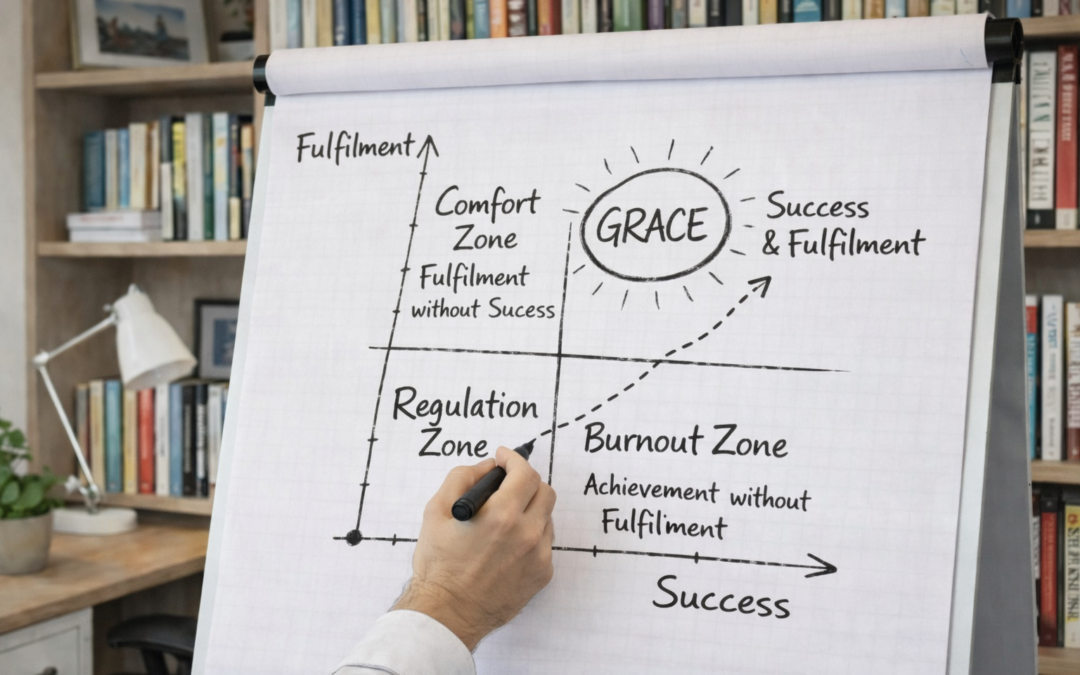 Fulfilment
Comfort
Zone
Fulfilment
without Sucess
GRACE
Success
& Fulfilment
Regulation
Zone
Burnout Zone
Achievement without
Fulfilment
Success